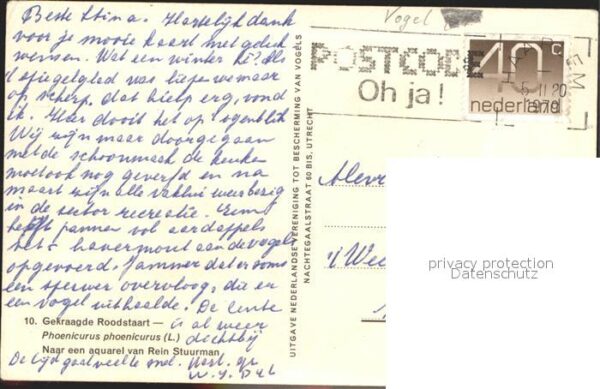 Beste Stina. Hartelijk dank
voor je mooie kaart met geluk
wensen. Wat een winter hè? Als
't spiegelglad was liepen we maar
op scherp. dat hielp erg, vond
ik. Hier dooit het op 't ogenblik
Wij zijn maar doorgegaan
met de schoonmaak de keuken
moest ook nog geverfd en na
maart zijn alle vaklui weer bezig
in de sector recreatie.
heeft pannen vol aardappels
het havermout aan de vogels
opgevoerd. Jammer dat er soms
een sperwer overvloog, die er
een vogel uithaalde. De lente
is al weer
dichtbij
De tijd gaat veel te snel. Hart. gr.
10. Gekraagde Roodstaart —
Phoenicurus phoenicurus (L.)
Naar een aquarel van Rein Stuurman
UITGAVE NEDERLANDSE VERENIGING TOT BESCHERMING VAN VOGELS
NACHTEGAALSTRAAT 60 BIS, UTRECHT
Vogel
POSTCODE
Oh ja!
40c
nederland
Mevr
't Wee
privacy protection
Datenschutz